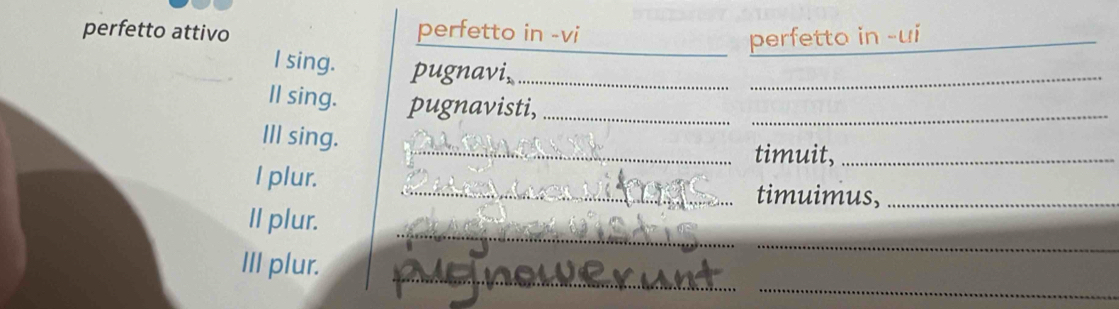 perfetto attivo perfetto in -vi perfetto in -ui
I sing. pugnavi,
II sing. pugnavisti,
III sing. timuit,
I plur. timuimus,
II plur. pugnavistis
III plur. pugnowerunt